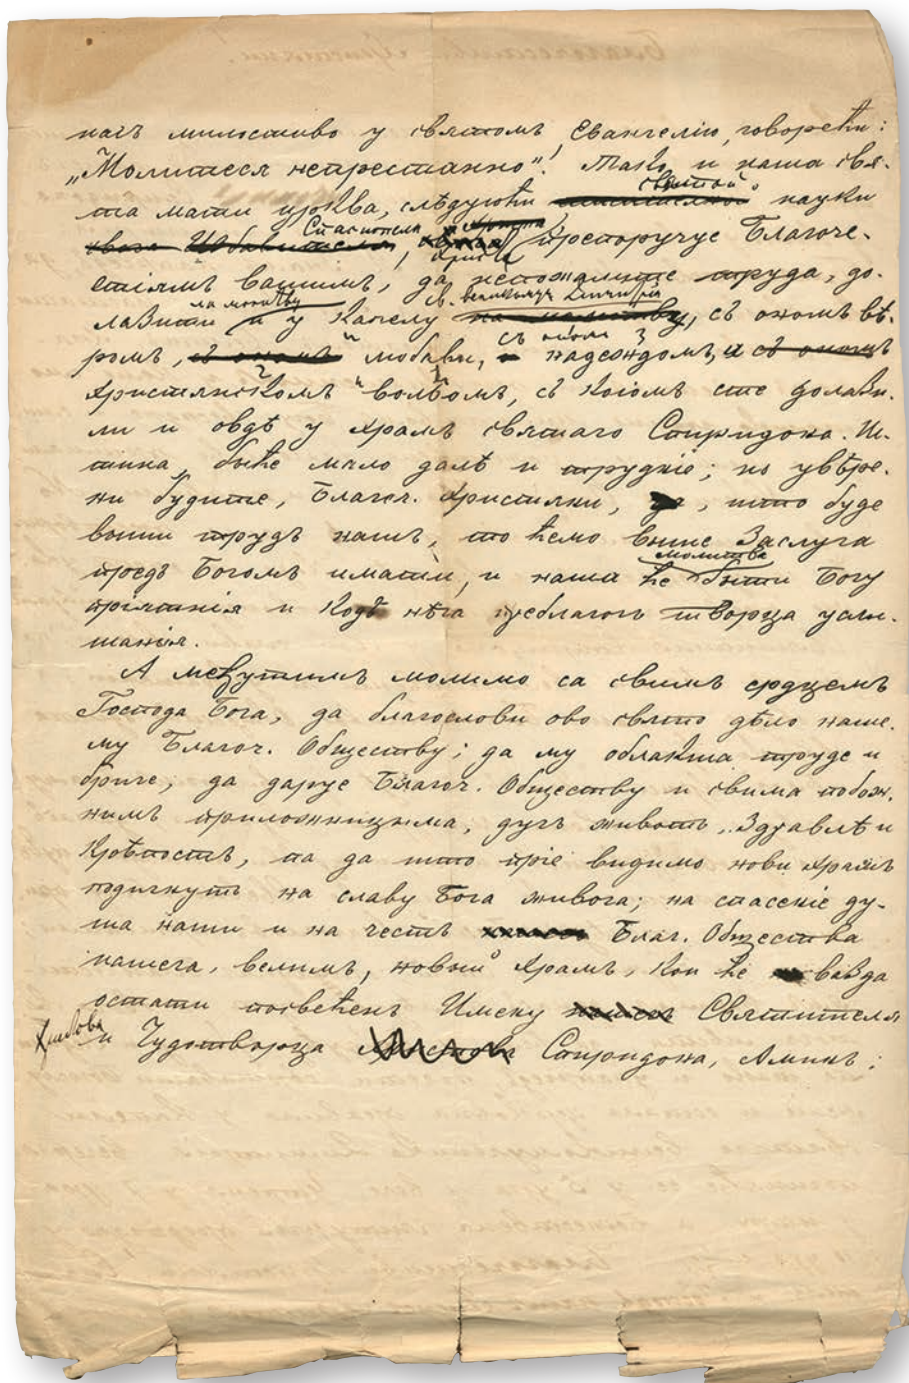 насъ милостиво у святомъ Євангелію, говорећи:
„Молитеся непрестанно“. Тако и наша свя-
та мати црква, слѣдуюћи святой науки
Спаситела Христа препоручує Благоче-
стіямъ вашимъ, да непожалите труда, до-
лазити на молитву и у Капелу В. великомуч. Димитрія, съ ономъ вѣ-
ромъ, и любави, съ ономъ надеждомъ, и
Христянскомъ волѣомъ, съ коіомъ сте долази-
ли и овдѣ у Храмъ святаго Спиридона. И-
стина, быће мало далѣ и труднiе; но увѣре-
ни будите, Благоч. Христяни, што буде
выши трудъ нашъ, то ћемо више Заслуга
предъ Богомъ имати, и наша молитва ће быти Богу
пріятнія и Кодъ нѣга преблагогъ творца усли-
шанія.
А међутимъ молимо са свимъ срдцемъ
Господа Бога, да благослови ово свято дѣло наше-
му Благоч. Обществу; да му облакша труде и
бриге; да дарує Благоч. Обществу и свима побож-
нимъ приложницима, дугъ животъ, Здравлѣ и
Крѣпость, па да што пріе видимо нови храмъ
подигнутъ на славу Бога живога; на спасеніе ду-
ша наши и на честь Благ. Общества
нашега, велимъ, новый Храмъ, Кои ће вазда
остати посвећенъ Имену Святителя
и Чудотворца Спиридона, Аминь;